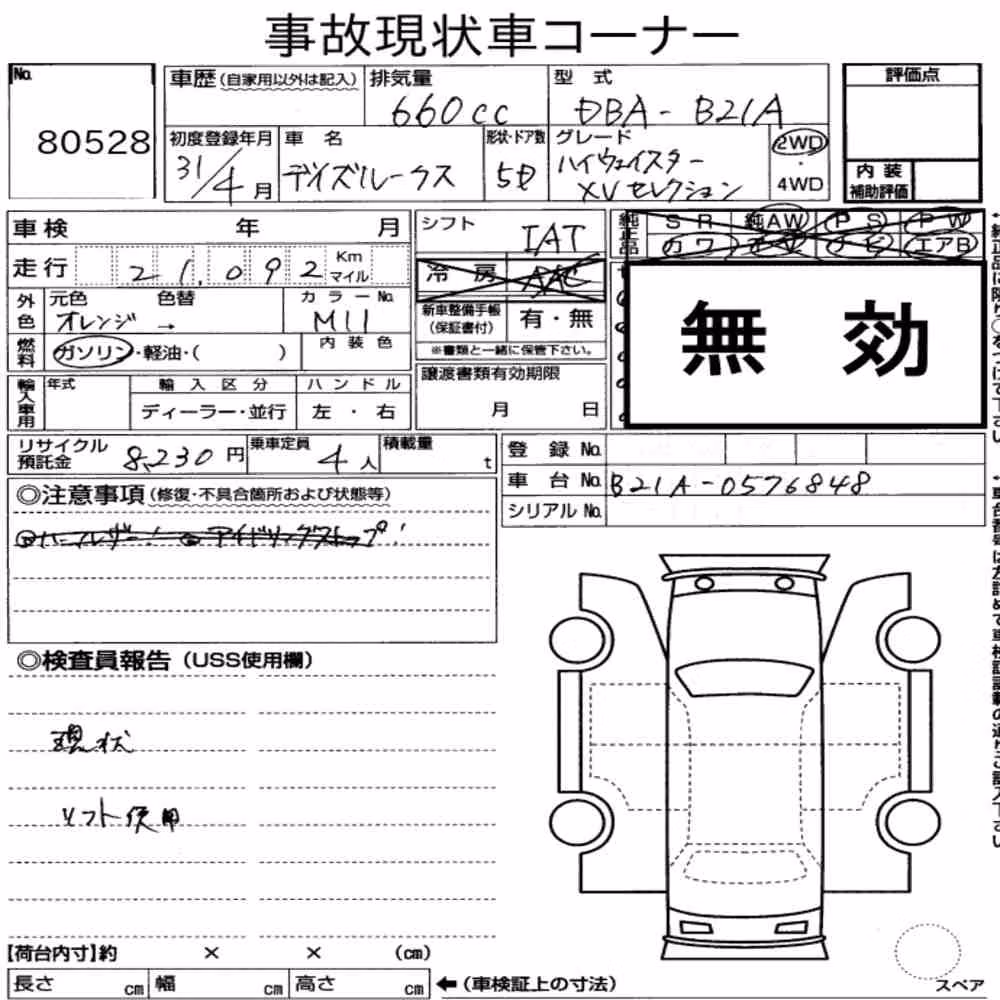 事故現状車コーナー
No.
80528
車歴(自家用以外は記入)
排気量
660cc
型式
DBA-B21A
評価点
初度登録年月
31/4月
車名
デイズルークス
形状・ドア数
5D
グレード
ハイウェイスター
XVセレクション
2WD
・
4WD
内装
補助評価
車検 年 月
シフト
IAT
純正品
SR 純AW PS PW
カワ エアB
走行
21,092
Km
マイル
冷房 AAC
外色
元色 色替
オレンジ →
カラーNo.
M11
新車整備手帳
(保証書付)
有・無
※書類と一緒に保管下さい。
無効
燃料
ガソリン・軽油・( )
内装色
輸入車用
年式
輸入区分
ディーラー・並行
ハンドル
左・右
譲渡書類有効期限
月 日
リサイクル
預託金
8,230円
乗車定員
4人
積載量
t
登録No.
車台No.
B21A-0576848
シリアルNo.
◎注意事項(修復・不具合箇所および状態等)
ハーフレザー! アイドリングストップ!
◎検査員報告(USS使用欄)
現状
リフト使用
【荷台内寸】約 × × (cm)
長さ cm 幅 cm 高さ cm
←(車検証上の寸法)
スペア